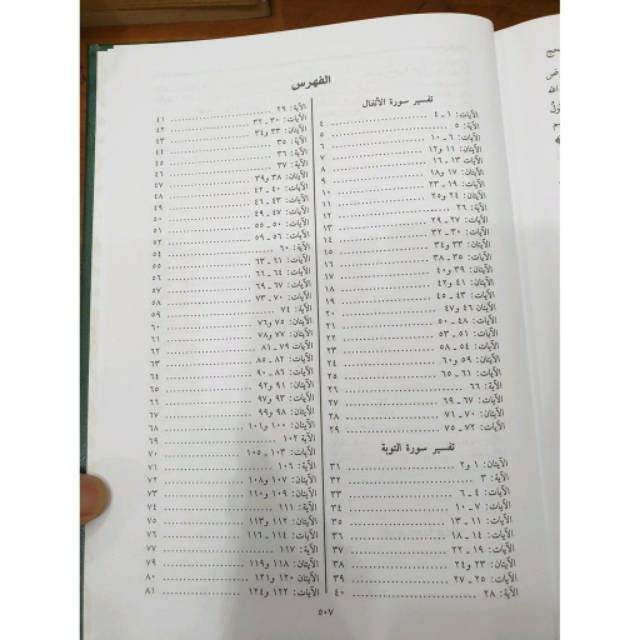 الفهرس
تفسير سورة الأنفال
الآيات: ١ ـ ٤ ........ ٤
الآية: ٥ ........ ٥
الآيات: ٦ ـ ١٠ ........ ٦
الآيتان: ١١ و١٢ ........ ٧
الآيات ١٣ ـ ١٦ ........ ٨
الآيتان: ١٧ و١٨ ........ ٩
الآيات: ١٩ ـ ٢٣ ........ ١٠
الآيتان: ٢٤ و٢٥ ........ ١١
الآية: ٢٦ ........ ١٢
الآيات: ٢٧ ـ ٢٩ ........ ١٣
الآيات: ٣٠ ـ ٣٢ ........ ١٤
الآيتان: ٣٣ و٣٤ ........ ١٥
الآيات: ٣٥ ـ ٣٨ ........ ١٦
الآيتان: ٣٩ و٤٠ ........ ١٧
الآيتان: ٤١ و٤٢ ........ ١٨
الآيات: ٤٣ ـ ٤٥ ........ ١٩
الآيتان ٤٦ و٤٧ ........ ٢٠
الآيات: ٤٨ ـ ٥٠ ........ ٢١
الآيات: ٥١ ـ ٥٣ ........ ٢٢
الآيات: ٥٤ ـ ٥٨ ........ ٢٣
الآيتان: ٥٩ و٦٠ ........ ٢٤
الآيات: ٦١ ـ ٦٥ ........ ٢٥
الآية: ٦٦ ........ ٢٦
الآيات: ٦٧ ـ ٦٩ ........ ٢٧
الآيتان: ٧٠ ـ ٧١ ........ ٢٨
الآيات: ٧٢ ـ ٧٥ ........ ٢٩
تفسير سورة التوبة
الآيتان: ١ و٢ ........ ٣١
الآية: ٣ ........ ٣٢
الآيات: ٤ ـ ٦ ........ ٣٣
الآيات: ٧ ـ ١٠ ........ ٣٤
الآيات: ١١ ـ ١٣ ........ ٣٥
الآيات: ١٤ ـ ١٨ ........ ٣٦
الآيات: ١٩ ـ ٢٢ ........ ٣٧
الآيتان: ٢٣ و٢٤ ........ ٣٨
الآيات: ٢٥ ـ ٢٧ ........ ٣٩
الآية: ٢٨ ........ ٤٠
الآية: ٢٩ ........ ٤١
الآيات: ٣٠ ـ ٣٢ ........ ٤٢
الآيتان: ٣٣ و٣٤ ........ ٤٣
الآية: ٣٥ ........ ٤٤
الآية: ٣٦ ........ ٤٥
الآية: ٣٧ ........ ٤٦
الآيتان: ٣٨ و٣٩ ........ ٤٧
الآيات: ٤٠ ـ ٤٢ ........ ٤٨
الآيات: ٤٣ ـ ٤٦ ........ ٤٩
الآيات: ٤٧ ـ ٤٩ ........ ٥٠
الآيات: ٥٠ ـ ٥٥ ........ ٥١
الآيات: ٥٦ ـ ٥٩ ........ ٥٣
الآية: ٦٠ ........ ٥٤
الآيات: ٦١ ـ ٦٣ ........ ٥٥
الآيات: ٦٤ ـ ٦٦ ........ ٥٦
الآيات: ٦٧ ـ ٦٩ ........ ٥٧
الآيات: ٧٠ ـ ٧٣ ........ ٥٨
الآية: ٧٤ ........ ٥٩
الآيتان: ٧٥ و٧٦ ........ ٦٠
الآيتان: ٧٧ و٧٨ ........ ٦١
الآيات ٧٩ ـ ٨١ ........ ٦٢
الآيات: ٨٢ ـ ٨٥ ........ ٦٣
الآيات: ٨٦ ـ ٩٠ ........ ٦٤
الآيتان: ٩١ و٩٢ ........ ٦٥
الآيات: ٩٣ و٩٧ ........ ٦٦
الآيتان: ٩٨ و٩٩ ........ ٦٧
الآيتان: ١٠٠ و١٠١ ........ ٦٨
الآية ١٠٢ ........ ٦٩
الآيات: ١٠٣ ـ ١٠٥ ........ ٧٠
الآية: ١٠٦ ........ ٧١
الآيتان: ١٠٧ و١٠٨ ........ ٧٢
الآيتان: ١٠٩ و١١٠ ........ ٧٣
الآية: ١١١ ........ ٧٤
الآيتان: ١١٢ و١١٣ ........ ٧٥
الآيات: ١١٤ ـ ١١٦ ........ ٧٦
الآية: ١١٧ ........ ٧٧
الآيتان: ١١٨ و١١٩ ........ ٧٩
الآيتان ١٢٠ و١٢١ ........ ٨٠
الآيات: ١٢٢ و١٢٤ ........ ٨١
٥٠٧